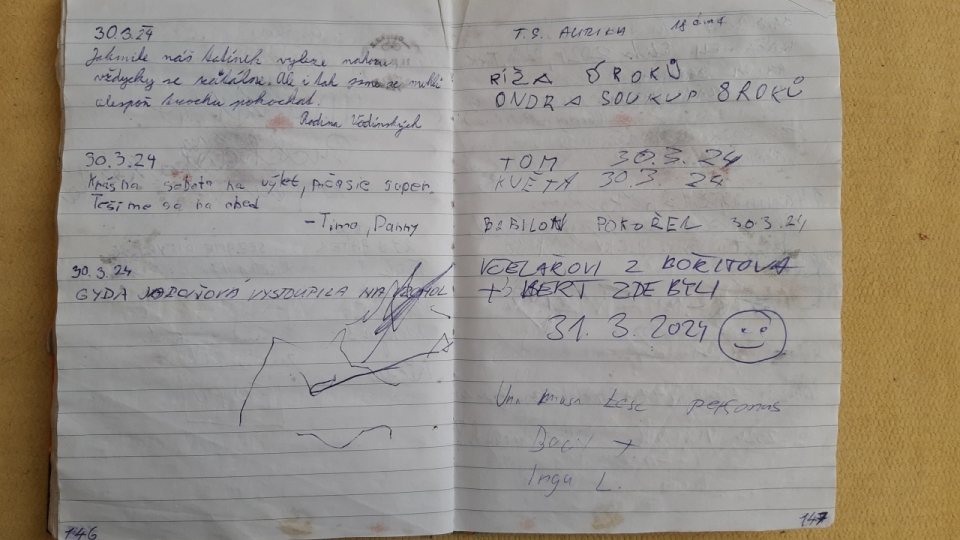 30.3.24
Jakmile náš tatínek vyleze nahoru
vždycky se
Ale i tak jsme se mohli
alespoň trochu pokochat.
Rodina Vodinských
30.3.24
Krásná sobota na výlet, počasie super.
Tešíme sa na obed
- Timo, Danny
30.3.24
GYDA VYSTOUPILA NA VRCHOL
146
T.S.
RÍŽA 5 ROKŮ
ONDRA SOUKUP 8 ROKŮ
TOM 30.3.24
KVĚTA 30.3. 24
BABILON POKOŘEN 30.3.24
VČELAŘOVI Z BOŘITOVA
+ BERT ZDE BYLI
31.3.2024
personas
Inga L.
147